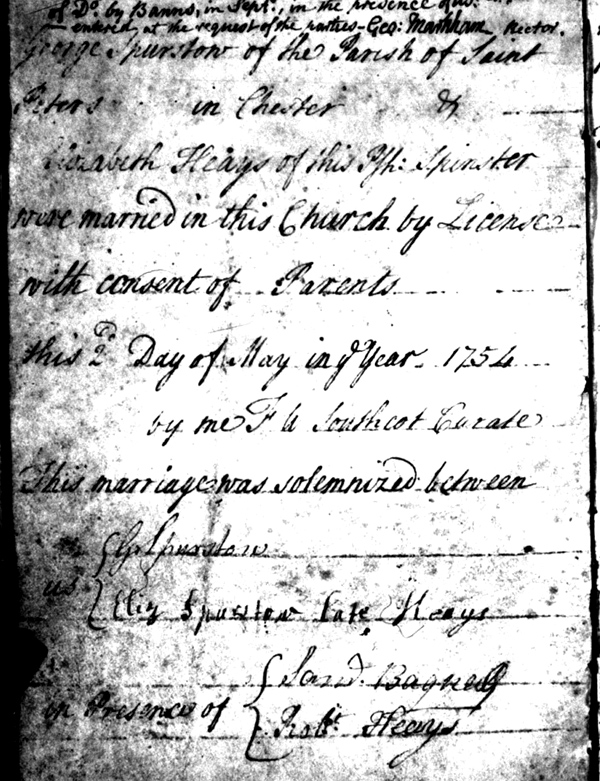 of Do. by Banns, in Sept:, in the presence of us:
entered at the request of the parties - Geo: Markham Rector.
George Spurstow of the Parish of Saint
Peters in Chester &
Elizabeth Heays of this Psh: Spinster
were married in this Church by License
with consent of Parents
this 2d Day of May in ye Year 1754
by me F Southcot Curate
This marriage was solemnized between
us { G: Spurstow
{ Eliz Spurstow late Heays
in Presence of { Saml. Bagnell
{ Robt. Heays